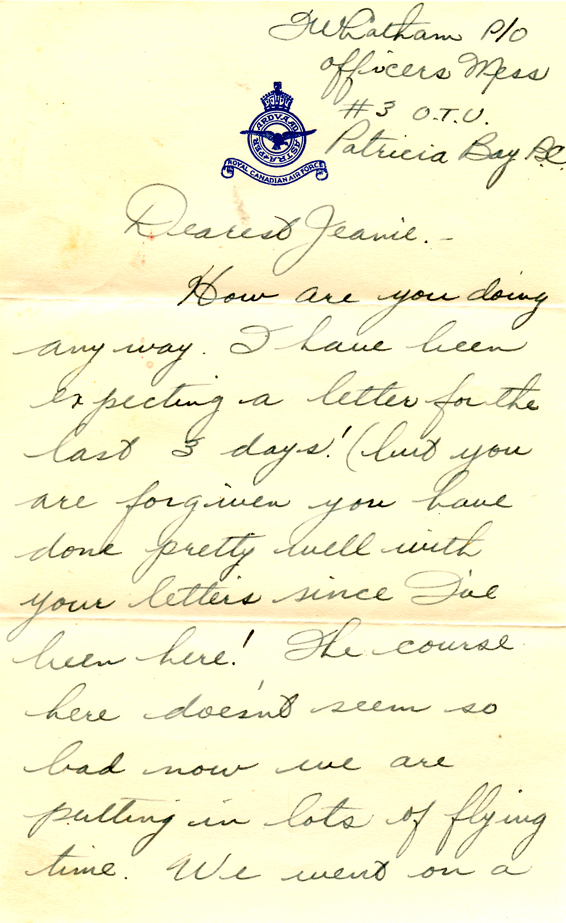 JWhatham P/O
Officers Mess
#3 O.T.U.
Patricia Bay B.C.
PER ARDVA AD ASTRA
ROYAL CANADIAN AIR FORCE
Dearest Jeanie. –
How are you doing
any way. I have been
expecting a letter for the
last 3 days! (but you
are forgiven you have
done pretty well with
your letters since I've
been here! The course
here does'nt seem so
bad now we are
putting in lots of flying
time. We went on a